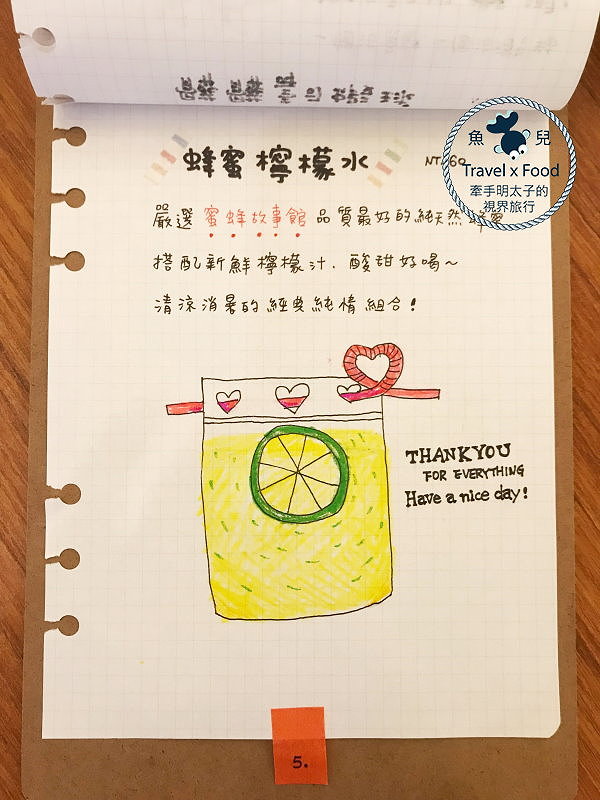 蜂蜜檸檬水 NT.60
嚴選 蜜蜂故事館 品質最好的純天然蜂蜜
搭配新鮮檸檬汁．酸甜好喝~
清涼消暑的經典純情組合!
THANK YOU
FOR EVERYTHING
Have a nice day!
5.
魚兒
Travel x Food
牽手明太子的
視界旅行